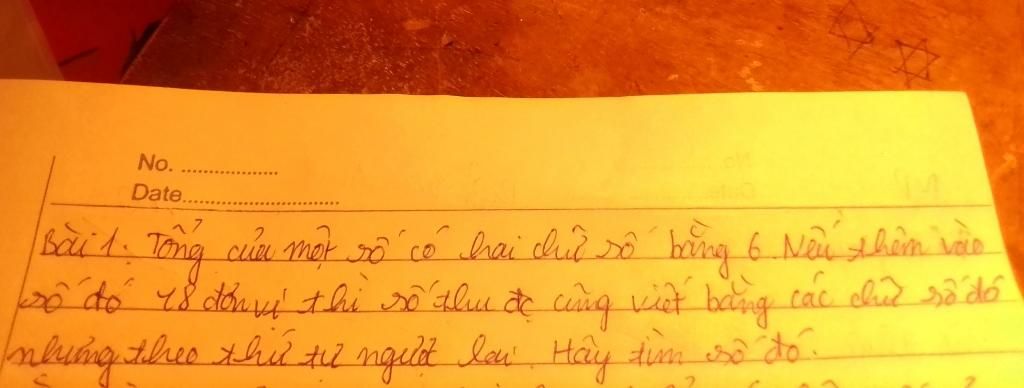 No. ..................
Date..............................
Bài 1: Tổng của một số có hai chữ số bằng 6. Nếu thêm vào
số đó 18 đơn vị thì số thu đc cũng viết bằng các chữ số đó
nhưng theo thứ tự ngược lại. Hãy tìm số đó.